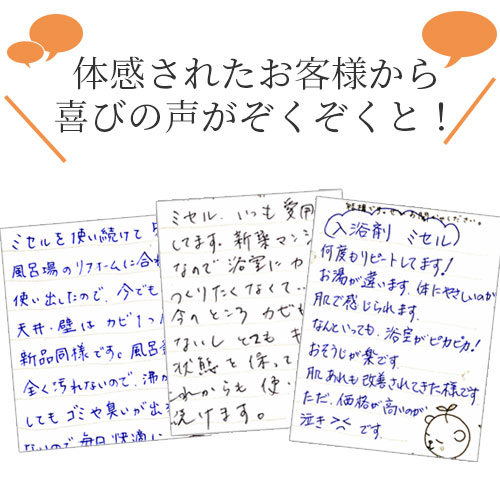 体感されたお客様から
喜びの声がぞくぞくと！
ミセルを使い続けて
風呂場のリフォームに合わ
使い出したので、今でも
天井・壁はカビ1つ
新品同様です。風呂
全く汚れないので、沸か
してもゴミや臭いが出
ないので毎日快適に
ミセル、いつも愛用
してます。新築マンシ
なので浴室にカ
つくりたくなくて‥
今のところ カビも
ないし とても キ
状態を保って
これからも使い
続けます。
入浴剤 ミセル
何度もリピートしてます！
お湯が違います。体にやさしいのが
肌で感じられます。
なんといっても、浴室がピカピカ！
おそうじが楽です。
肌あれも改善されてきた様です
ただ、価格が高いのが
泣き>< です。